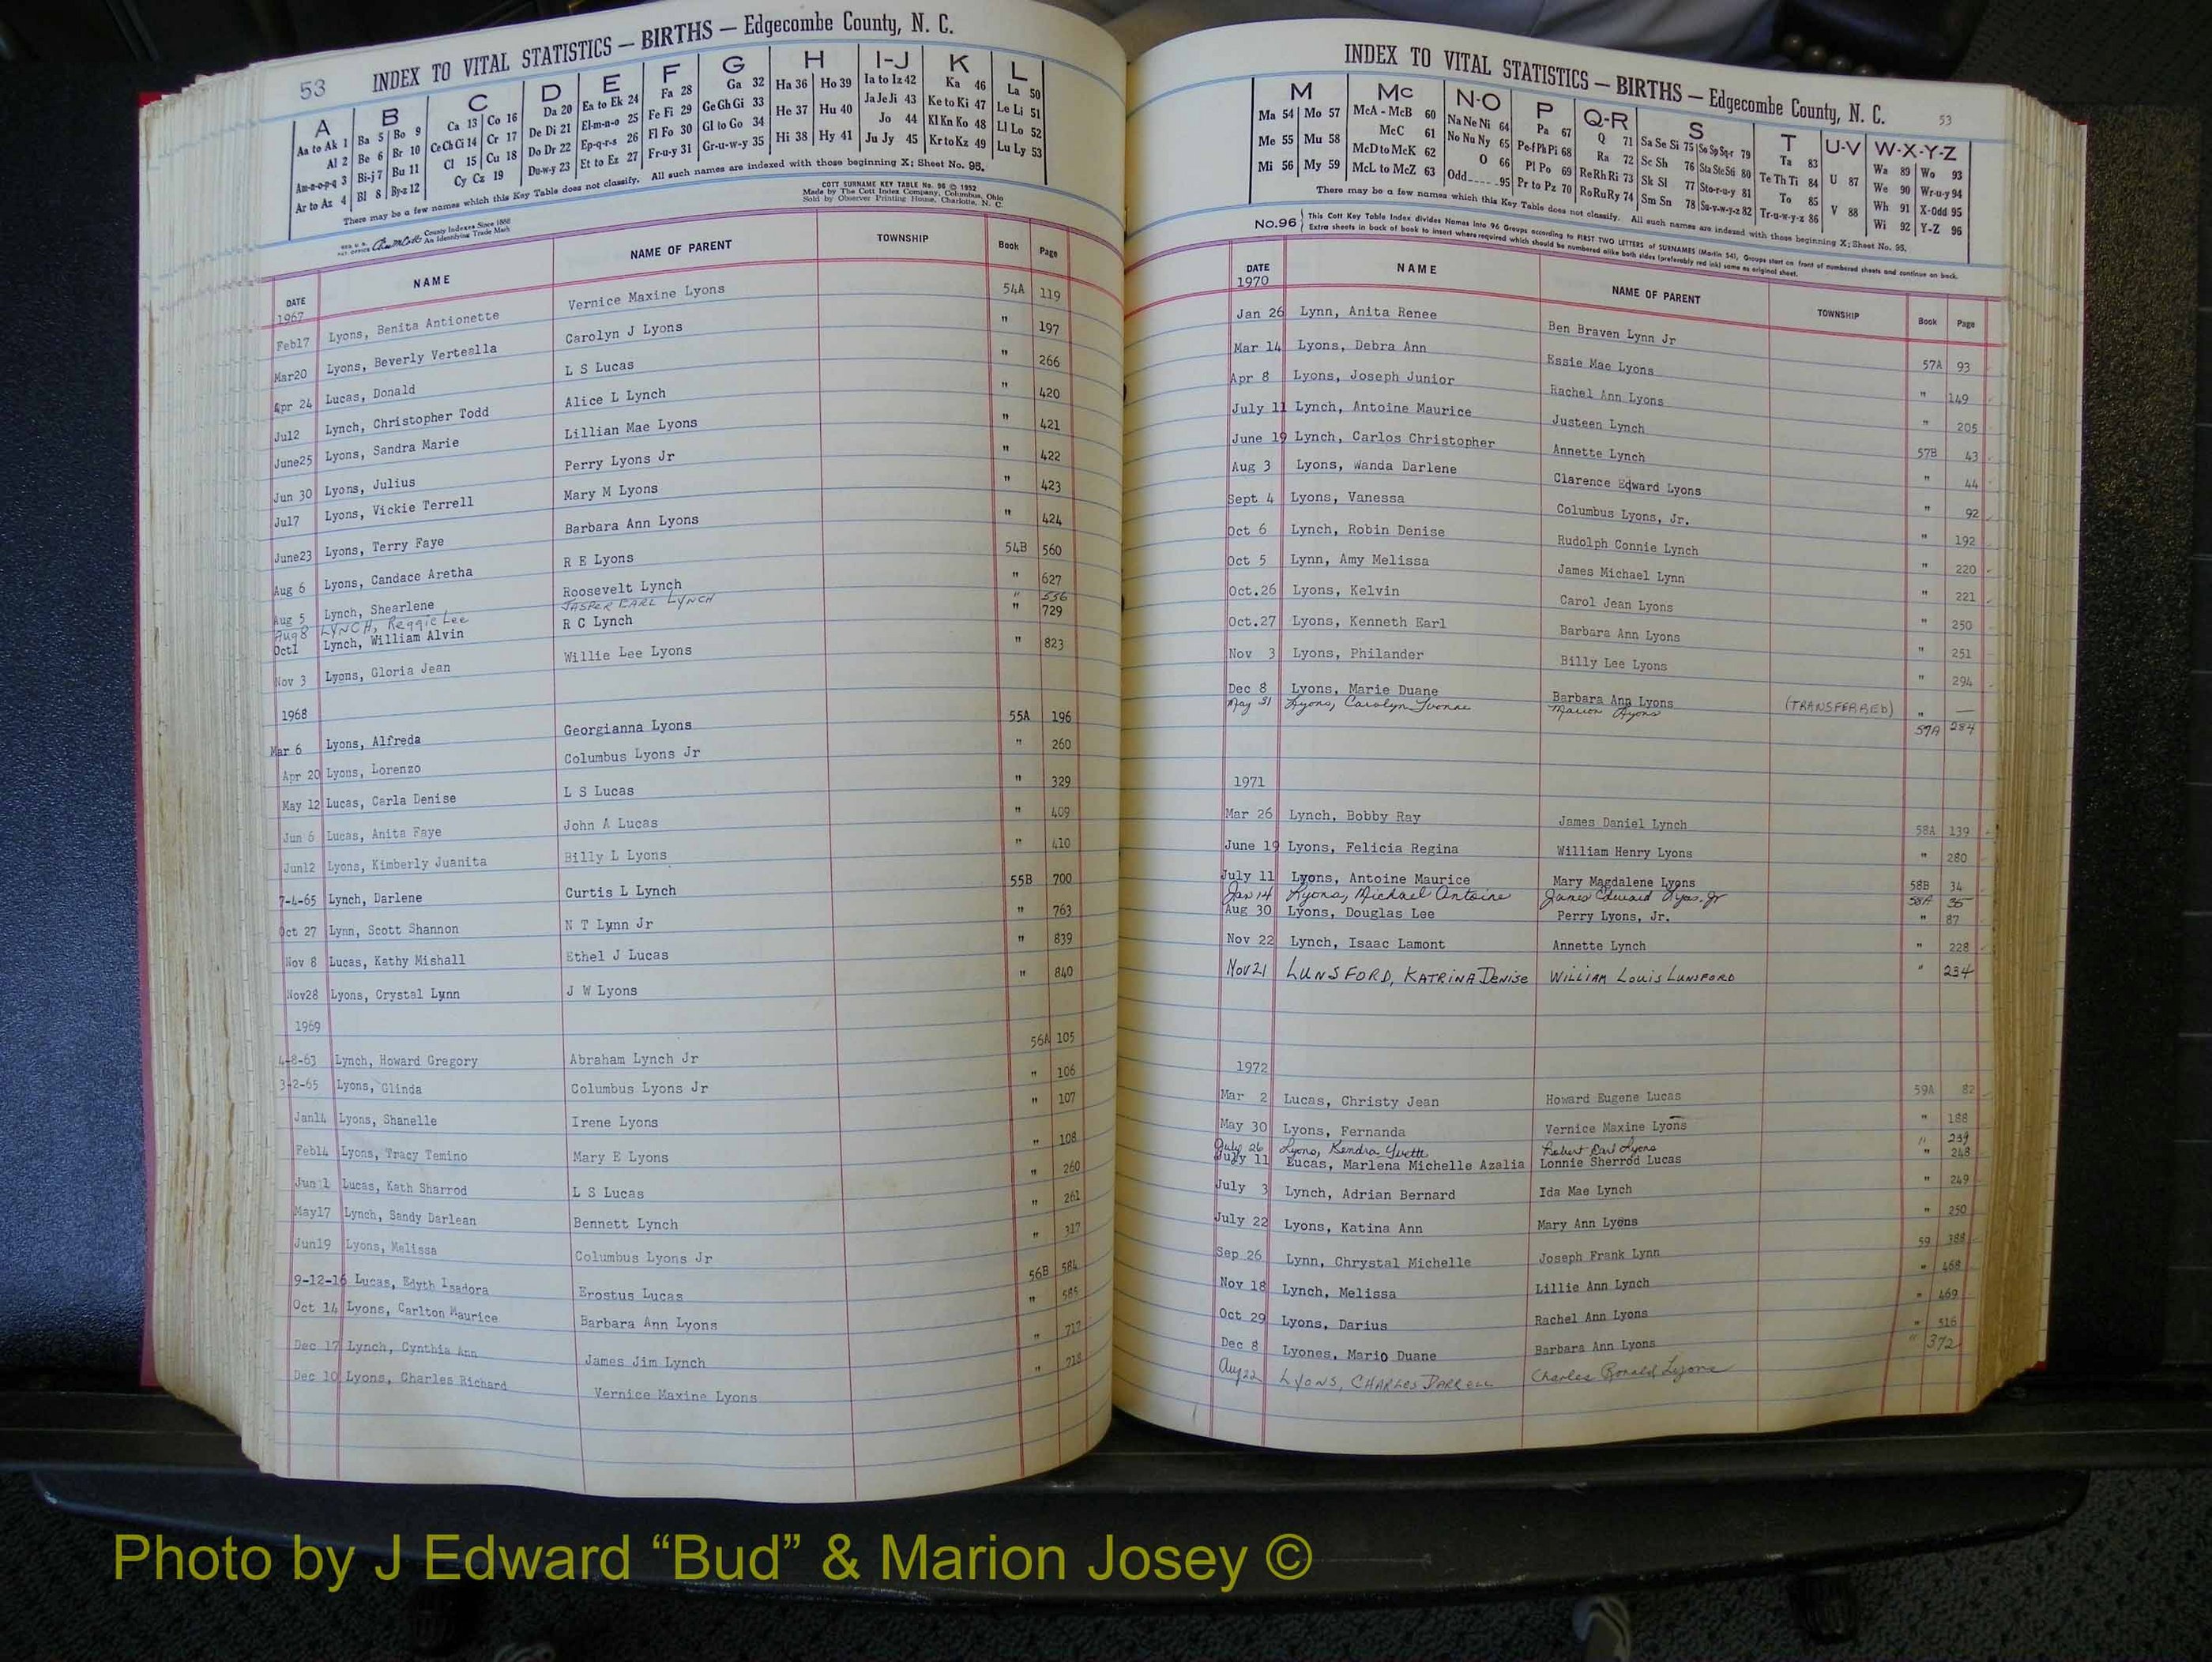 53 INDEX TO VITAL STATISTICS — BIRTHS — Edgecombe County, N. C.
A B C D E F G H I-J K L
Aa to Ak 1 Ba 5 Bo 9 Ca 13 Co 16 Da 20 Ea to Ek 24 Fa 28 Ga 32 Ha 36 Ho 39 Ia to Iz 42 Ka 46 La 50
Al 2 Be 6 Br 10 Ce Ch Ci 14 Cr 17 De Di 21 El-m-n-o 25 Fe Fi 29 Ge Gh Gi 33 He 37 Hu 40 Ja Je Ji 43 Ke to Ki 47 Le Li 51
Am-n-o-p-q 3 Bi-j 7 Bu 11 Cl 15 Cu 18 Do Dr 22 Ep-q-r-s 26 Fl Fo 30 Gl to Go 34 Hi 38 Hy 41 Jo 44 Kl Kn Ko 48 Ll Lo 52
Ar to Az 4 Bl 8 By-z 12 Cy Cz 19 Du-w-y 23 Et to Ez 27 Fr-u-y 31 Gr-u-w-y 35 Ju Jy 45 Kr to Kz 49 Lu Ly 53
There may be a few names which this Key Table does not classify. All such names are indexed with those beginning X; Sheet No. 95.
COTT SURNAME KEY TABLE No. 96 © 1952
Made by The Cott Index Company, Columbus, Ohio
Sold by Observer Printing House, Charlotte, N. C.
County Indexes Since 1888
An Identifying Trade Mark
DATE NAME NAME OF PARENT TOWNSHIP Book Page
1967
Feb17 Lyons, Benita Antionette Vernice Maxine Lyons 54A 119
Mar20 Lyons, Beverly Vertealla Carolyn J Lyons " 197
Apr 24 Lucas, Donald L S Lucas " 266
Jul2 Lynch, Christopher Todd Alice L Lynch " 420
June25 Lyons, Sandra Marie Lillian Mae Lyons " 421
Jun 30 Lyons, Julius Perry Lyons Jr " 422
Jul7 Lyons, Vickie Terrell Mary M Lyons " 423
June23 Lyons, Terry Faye Barbara Ann Lyons " 424
Aug 6 Lyons, Candace Aretha R E Lyons 54B 560
Aug 5 Lynch, Shearlene Roosevelt Lynch " 627
Aug 8 LYNCH, Reggie Lee JASPER EARL LYNCH " 556
Oct1 Lynch, William Alvin R C Lynch " 729
Nov 3 Lyons, Gloria Jean Willie Lee Lyons " 823
1968
Mar 6 Lyons, Alfreda Georgianna Lyons 55A 196
Apr 20 Lyons, Lorenzo Columbus Lyons Jr " 260
May 12 Lucas, Carla Denise L S Lucas " 329
Jun 6 Lucas, Anita Faye John A Lucas " 409
Jun12 Lyons, Kimberly Juanita Billy L Lyons " 410
7-4-65 Lynch, Darlene Curtis L Lynch 55B 700
Oct 27 Lynn, Scott Shannon N T Lynn Jr " 763
Nov 8 Lucas, Kathy Mishall Ethel J Lucas " 839
Nov28 Lyons, Crystal Lynn J W Lyons " 840
1969
4-8-63 Lynch, Howard Gregory Abraham Lynch Jr 56A 105
3-2-65 Lyons, Glinda Columbus Lyons Jr " 106
Jan14 Lyons, Shanelle Irene Lyons " 107
Feb14 Lyons, Tracy Temino Mary E Lyons " 108
Jun 1 Lucas, Kath Sharrod L S Lucas " 260
May17 Lynch, Sandy Darlean Bennett Lynch " 261
Jun19 Lyons, Melissa Columbus Lyons Jr " 317
9-12-16 Lucas, Edyth Isadora Erostus Lucas 56B 584
Oct 14 Lyons, Carlton Maurice Barbara Ann Lyons " 585
Dec 17 Lynch, Cynthia Ann James Jim Lynch " 717
Dec 10 Lyons, Charles Richard Vernice Maxine Lyons " 718
INDEX TO VITAL STATISTICS — BIRTHS — Edgecombe County, N. C. 53
M Mc N-O P Q-R S T U-V W-X-Y-Z
Ma 54 Mo 57 McA - McB 60 Na Ne Ni 64 Pa 67 Q 71 Sa Se Si 75 So Sp Sq-r 79 Ta 83 Wa 89 Wo 93
Me 55 Mu 58 McC 61 No Nu Ny 65 Pe-f Ph Pi 68 Ra 72 Sc Sh 76 Sta Ste Sti 80 Te Th Ti 84 U 87 We 90 Wr-u-y 94
Mi 56 My 59 McD to McK 62 O 66 Pl Po 69 Re Rh Ri 73 Sk Sl 77 Sto-r-u-y 81 To 85 V 88 Wh 91 X-Odd 95
McL to McZ 63 Odd 95 Pr to Pz 70 Ro Ru Ry 74 Sm Sn 78 Su-v-w-y-z 82 Tr-u-w-y-z 86 Wi 92 Y-Z 96
There may be a few names which this Key Table does not classify. All such names are indexed with those beginning X; Sheet No. 95.
No.96 This Cott Key Table Index divides Names into 96 Groups according to FIRST TWO LETTERS of SURNAMES (Martin 54). Groups start on front of numbered sheets and continue on back.
Extra sheets in back of book to insert where required which should be numbered alike both sides (preferably red ink) same as original sheet.
DATE NAME NAME OF PARENT TOWNSHIP Book Page
1970
Jan 26 Lynn, Anita Renee Ben Braven Lynn Jr 57A 93
Mar 14 Lyons, Debra Ann Essie Mae Lyons " 149
Apr 8 Lyons, Joseph Junior Rachel Ann Lyons " 205
July 11 Lynch, Antoine Maurice Justeen Lynch 57B 43
June 19 Lynch, Carlos Christopher Annette Lynch " 44
Aug 3 Lyons, Wanda Darlene Clarence Edward Lyons " 92
Sept 4 Lyons, Vanessa Columbus Lyons, Jr. " 192
Oct 6 Lynch, Robin Denise Rudolph Connie Lynch " 220
Oct 5 Lynn, Amy Melissa James Michael Lynn " 221
Oct.26 Lyons, Kelvin Carol Jean Lyons " 250
Oct.27 Lyons, Kenneth Earl Barbara Ann Lyons " 251
Nov 3 Lyons, Philander Billy Lee Lyons " 294
Dec 8 Lyons, Marie Duane Barbara Ann Lyons (TRANSFERRED) " —
May 31 Lyons, Carolyn Yvonne Marion Lyons 57A 284
1971
Mar 26 Lynch, Bobby Ray James Daniel Lynch 58A 139
June 19 Lyons, Felicia Regina William Henry Lyons " 280
July 11 Lyons, Antoine Maurice Mary Magdalene Lyons 58B 34
Jan 14 Lyons, Michael Antoine James Edward Lyons, Jr 58A 35
Aug 30 Lyons, Douglas Lee Perry Lyons, Jr. " 87
Nov 22 Lynch, Isaac Lamont Annette Lynch " 228
Nov 21 LUNSFORD, KATRINA Denise WILLIAM LOUIS LUNSFORD " 234
1972
Mar 2 Lucas, Christy Jean Howard Eugene Lucas 59A 82
May 30 Lyons, Fernanda Vernice Maxine Lyons " 188
July 26 Lyons, Kendra Yvette Robert Earl Lyons " 239
July 11 Lucas, Marlena Michelle Azalia Lonnie Sherrod Lucas " 248
July 3 Lynch, Adrian Bernard Ida Mae Lynch " 249
July 22 Lyons, Katina Ann Mary Ann Lyons " 250
Sep 26 Lynn, Chrystal Michelle Joseph Frank Lynn 59 388
Nov 18 Lynch, Melissa Lillie Ann Lynch " 468
Oct 29 Lyons, Darius Rachel Ann Lyons " 469
Dec 8 Lyones, Mario Duane Barbara Ann Lyons " 516
Aug 22 LYONS, CHARLES DARRELL Charles Ronald Lyons " 372
Photo by J Edward “Bud” & Marion Josey ©